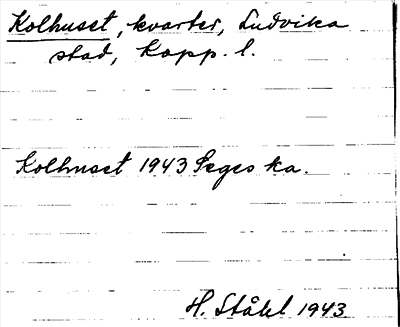 Kolhuset, kvarter, Ludvika
stad, Kopp. l.
Kolhuset 1943 Seges ka.
H. Ståhl 1943